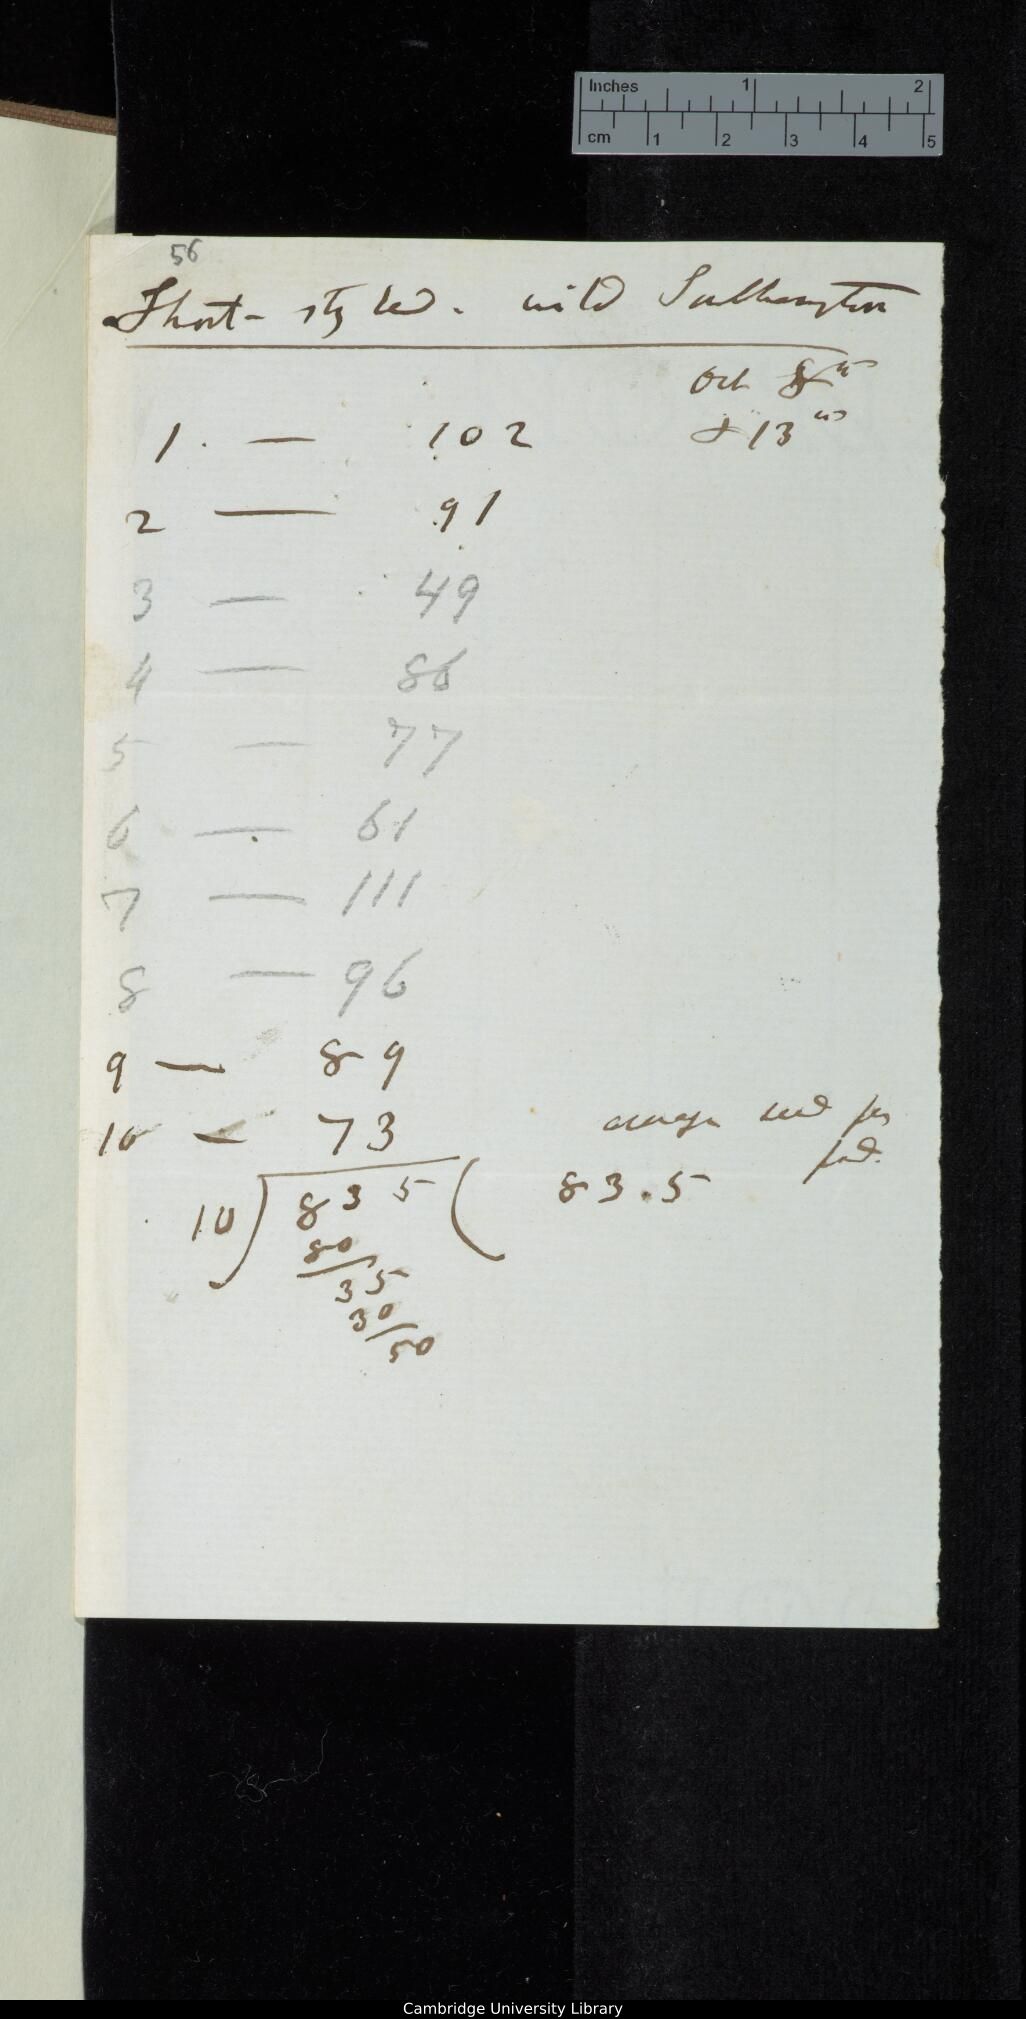 Inches 1 2
cm 1 2 3 4 5
56
Short-styled. wild Southampton
Oct 8th
& 13th
1. — 102
2 — 91
3 — 49
4 — 86
5 — 77
6 — 61
7 — 111
8 — 96
9 — 89
10 — 73
average seed per
pod.
10) 835 ( 83.5
80/
35
30/
50
Cambridge University Library